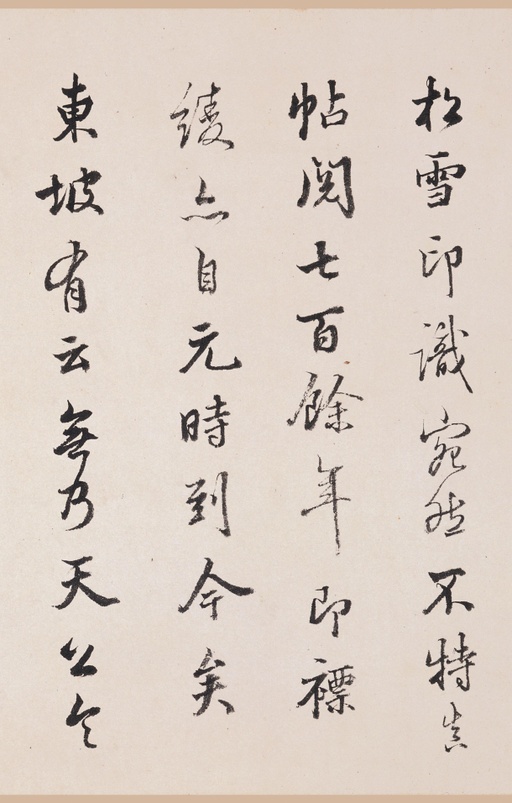 松雪印識宛然不特真
帖閱七百餘年即褾
綾亦自元時到今矣
東坡有云無乃天公令